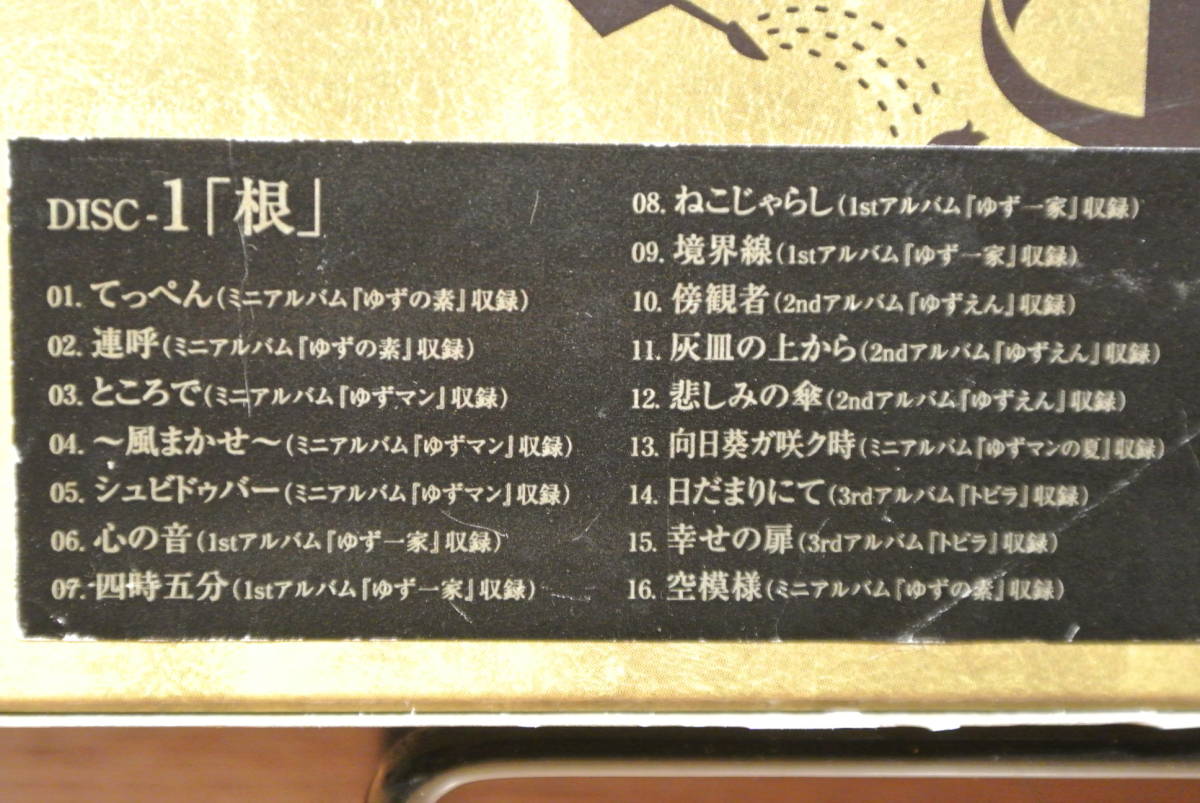 DISC-1「根」
01. てっぺん(ミニアルバム『ゆずの素』収録)
02. 連呼(ミニアルバム『ゆずの素』収録)
03. ところで(ミニアルバム『ゆずマン』収録)
04. 〜風まかせ〜(ミニアルバム『ゆずマン』収録)
05. シュビドゥバー(ミニアルバム『ゆずマン』収録)
06. 心の音(1stアルバム『ゆず一家』収録)
07. 四時五分(1stアルバム『ゆず一家』収録)
08. ねこじゃらし(1stアルバム『ゆず一家』収録)
09. 境界線(1stアルバム『ゆず一家』収録)
10. 傍観者(2ndアルバム『ゆずえん』収録)
11. 灰皿の上から(2ndアルバム『ゆずえん』収録)
12. 悲しみの傘(2ndアルバム『ゆずえん』収録)
13. 向日葵ガ咲ク時(ミニアルバム『ゆずマンの夏』収録)
14. 日だまりにて(3rdアルバム『トビラ』収録)
15. 幸せの扉(3rdアルバム『トビラ』収録)
16. 空模様(ミニアルバム『ゆずの素』収録)